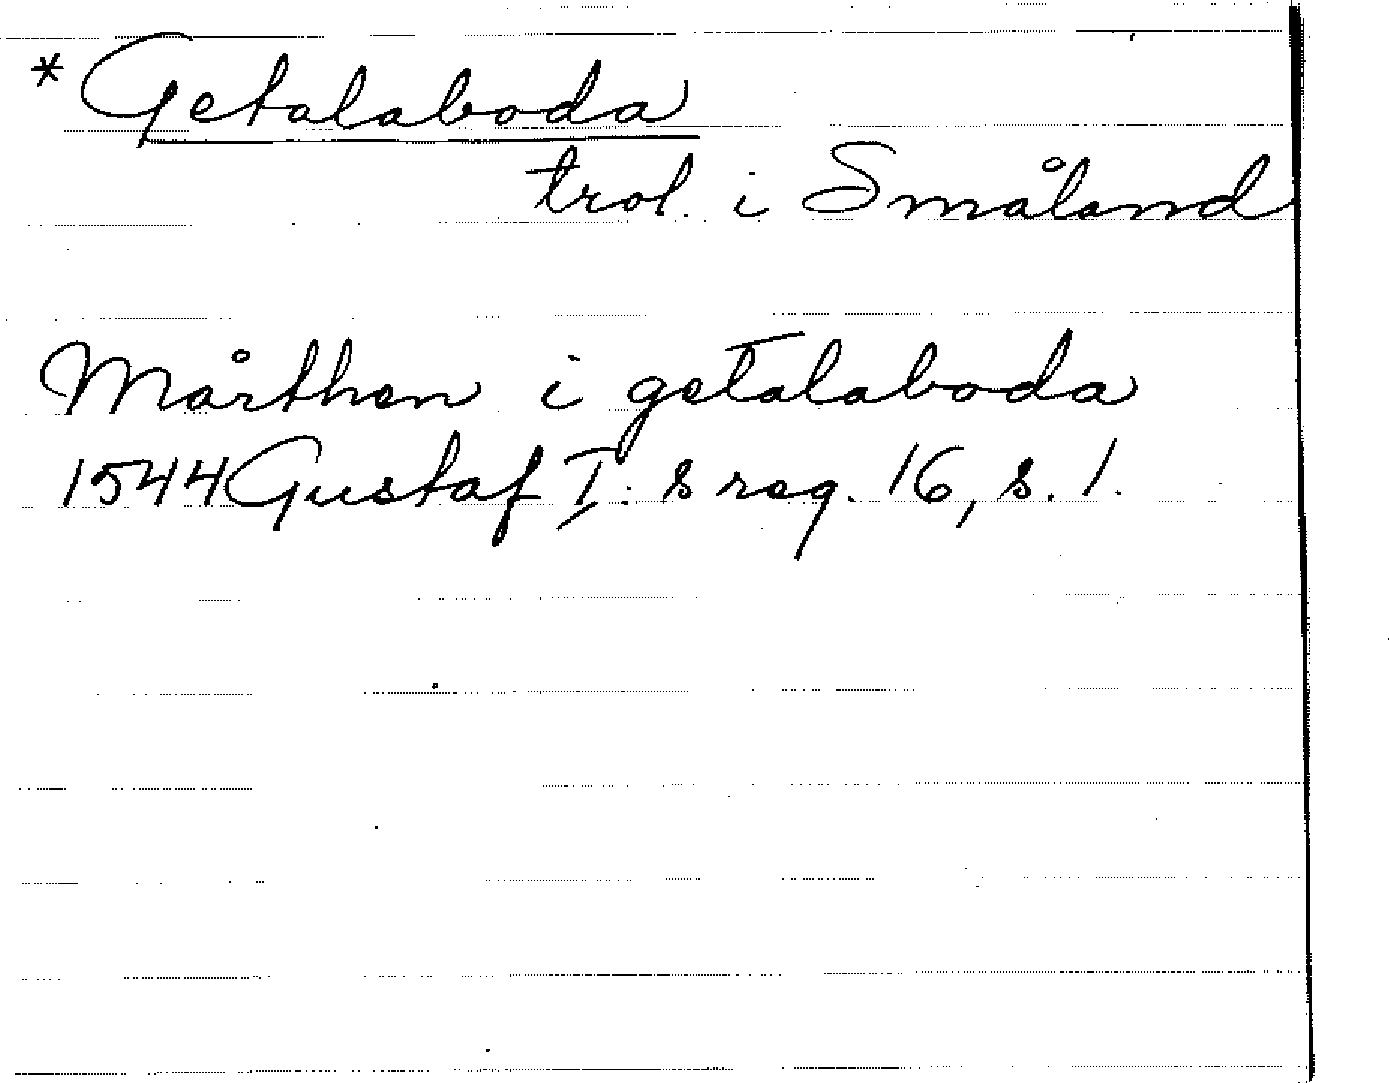 * Getalaboda
trol. i Småland
Mårthen i getalaboda
1544 Gustaf I:s reg. 16, s. 1.